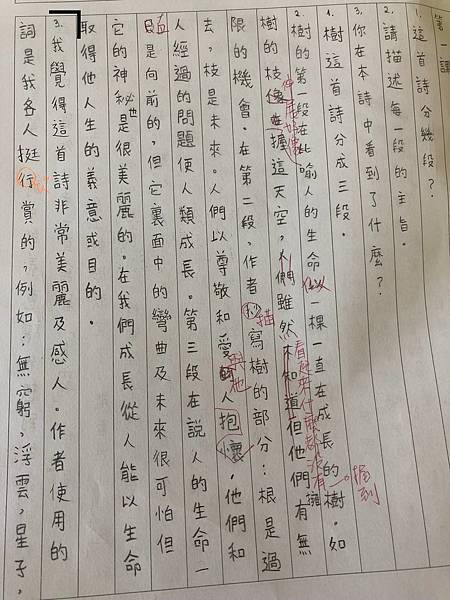 第一課
1. 這首詩分幾段？
2. 請描述每一段的主旨。
3. 你在本詩中看到了什麼？
1. 樹這首詩分成三段。
2. 樹的第一段在比喻人的生命似以一棵一直在成長的樹。如
樹的枝像在握這天空，人們雖然不知道但他們擁有無
限的機會。在第二段，作者抄寫樹的部分：根是過
去，枝是未來。人們以尊敬和愛的人抱懷，他們和
人經過的問題使人類成長。第三段在説人的生命一
直是向前的，但它裏面中的彎曲及未來很可怕但
它的神秘也是很美麗的。在我們成長從人能以生命
取得他人生的義意或目的。
3. 我覺得這首詩非常美麗及感人。作者使用的
詞是我各人挺行賞的，例如：無窮，浮雲，星子。
描
握到